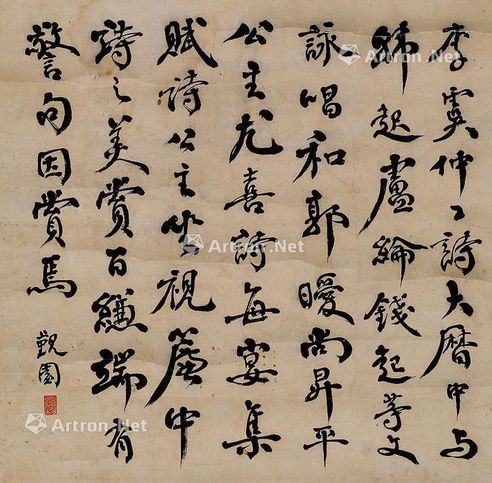 李虞仲工詩大曆中与
韩起盧綸錢起等文
詠唱和郭曖尚昇平
公主尤喜詩每宴集
賦詩公主坐視簾中
詩之美賞百縑端有
警句因賞焉
觀園
Artron.Net
Artron.Net
Artron.Net
Artron.Net
Artron.Net